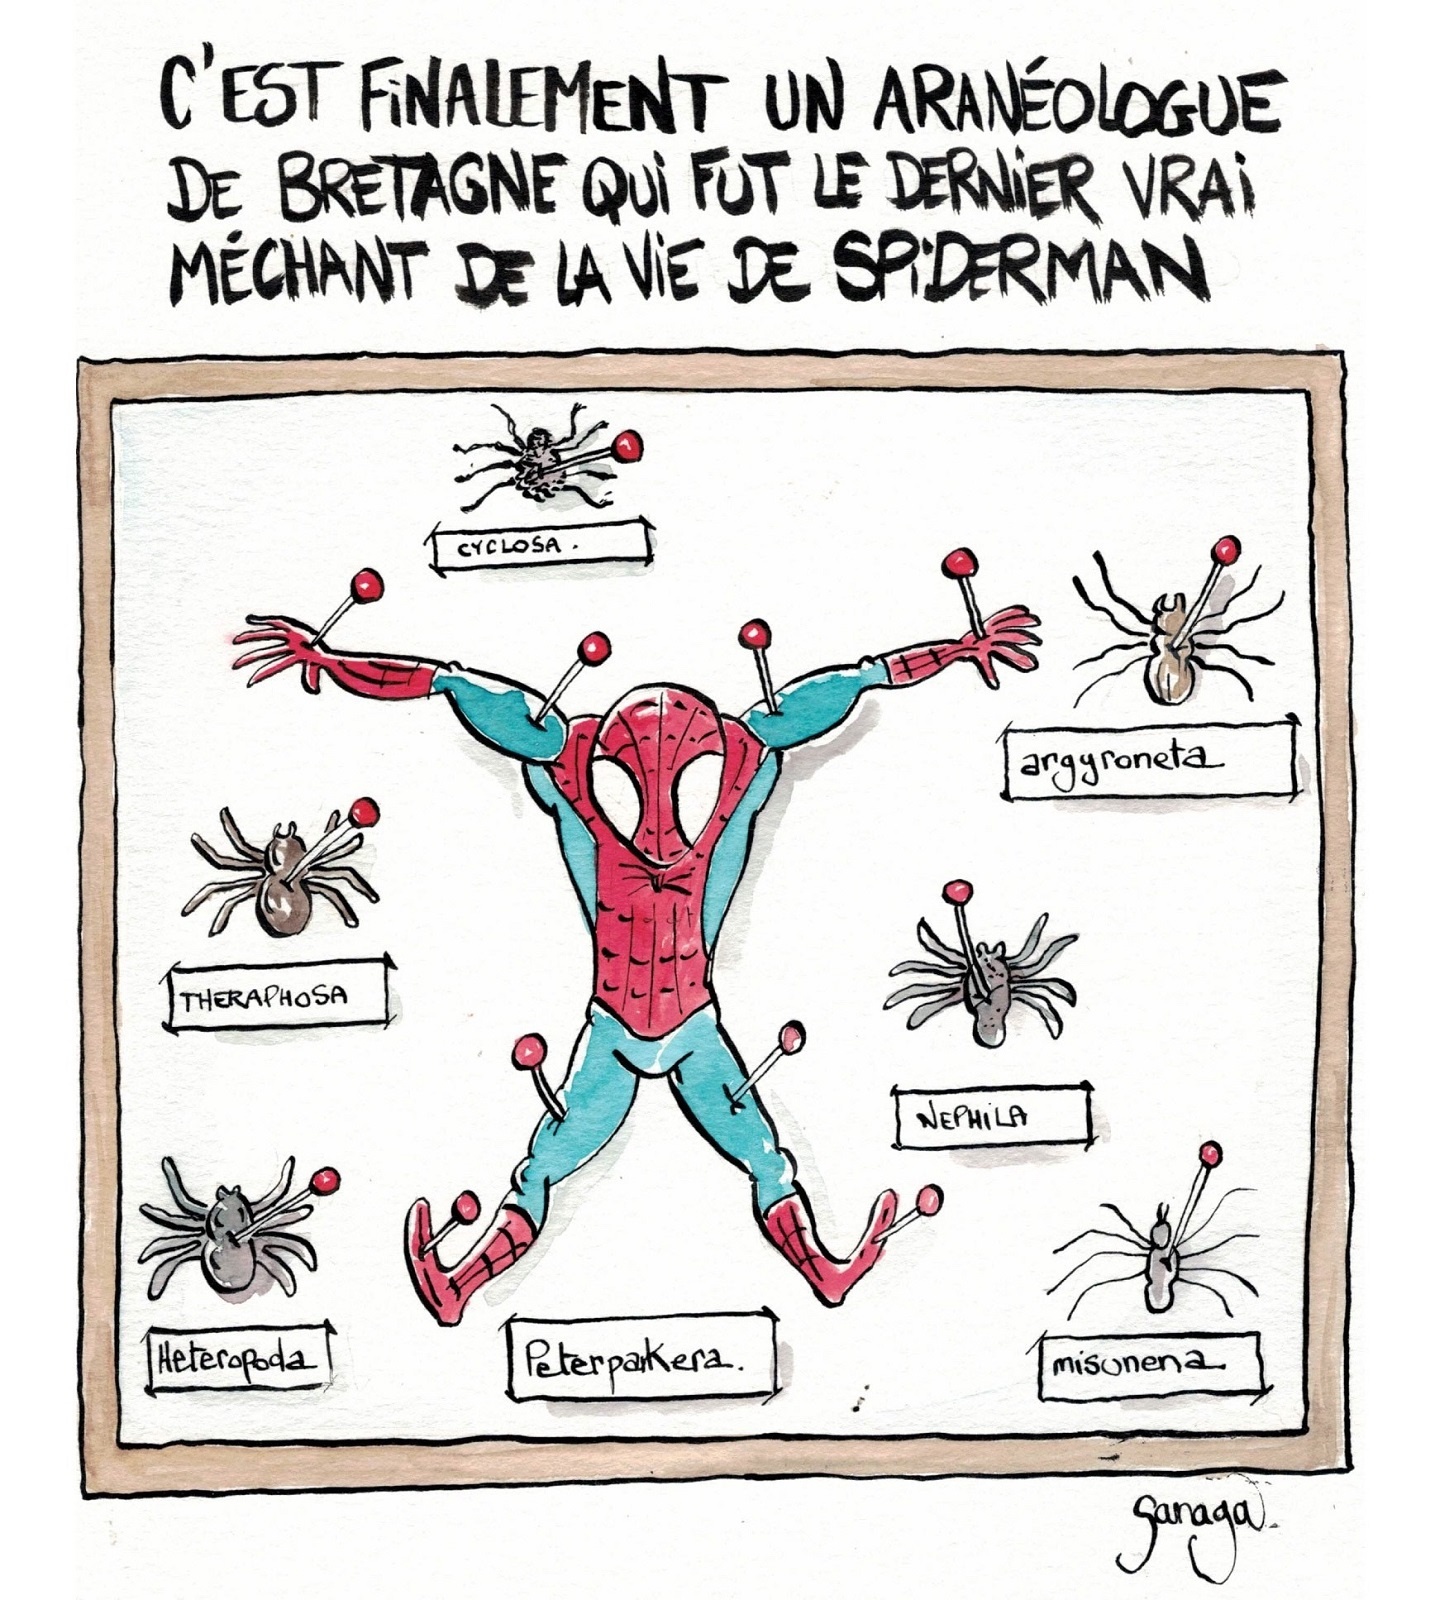 C'EST FiNALEMENT UN ARANÉOLOGUE
DE BRETAGNE QUi FUT LE DERNiER VRAi
MÉCHANT DE LA ViE DE SPiDERMAN
CYCLOSA.
argyroneta
THERAPHOSA
NEPHiLA
Heteropoda
Peterparkera.
misunena
sanaga.